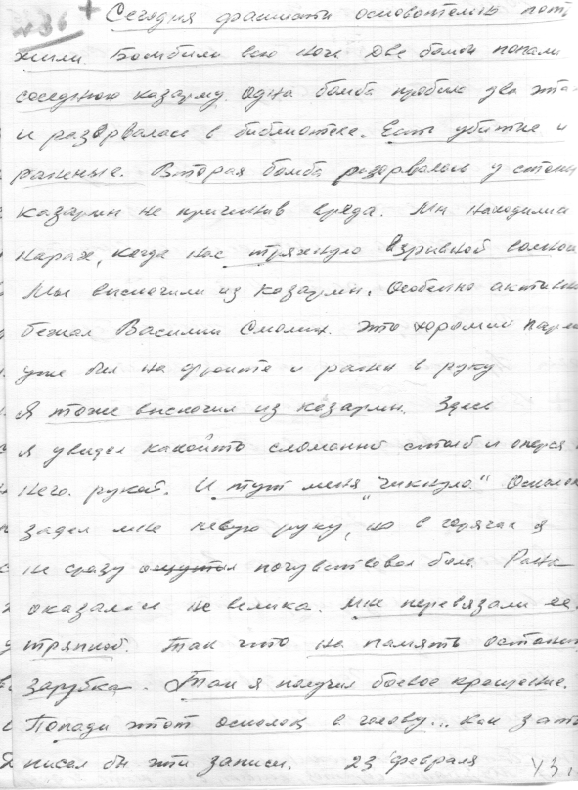 №36 + Сегодня фашисты основательно пот
жили. Бомбили всю ночь Две бомбы попали
соседнюю казарму. Одна бомба пробила два эта-
и разорвалась в библиотеке. Есть убитые и
раненые. Вторая бомба разорвалась у стены
казармы не причинив вреда. Мы находились
нарах, когда нас тряхнуло взрывной волной
Мы выскочили из казармы. Особенно активно
бежал Василий Смолин. Это хороший парень
уже был на фронте и ранен в руку
Я тоже выскочил из казармы. Здесь
я увидел какойто сломанный столб и оперся
него рукой. И тут меня "чикнуло" Осколок
задел мне левую руку, но в горячах я
не сразу почувствовал боль. Рана
оказалась не велика. Мне перевязали ее
тряпкой. Так что на память останется
зарубка. Так я получил боевое крещение.
Попади этот осколок в голову... как зат
писал бы эти записи. 23 февраля 43